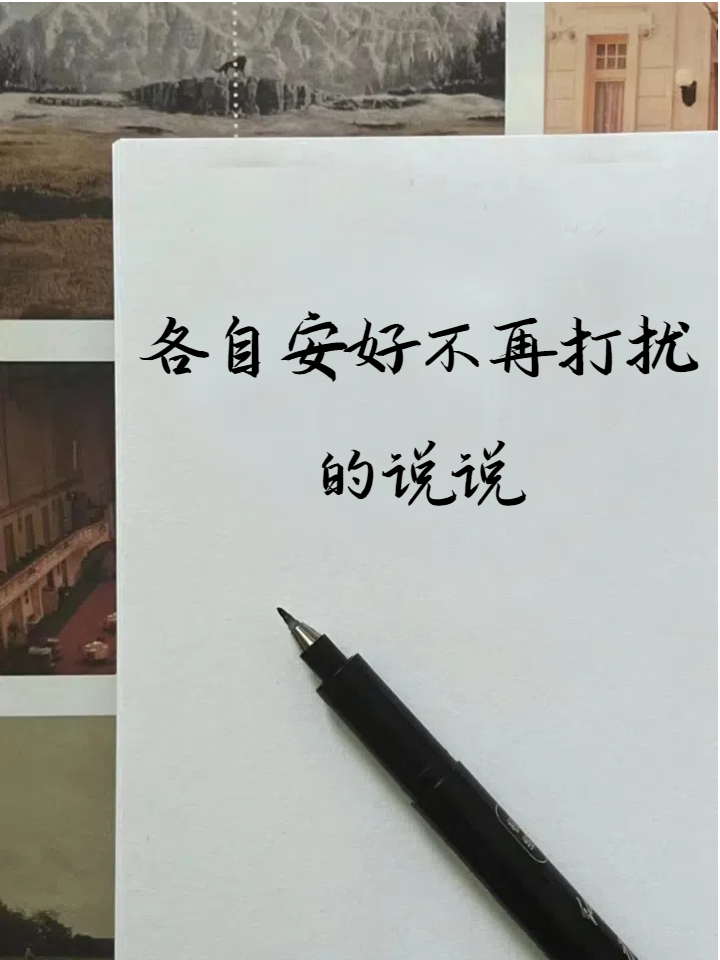 各自安好不再打扰
的说说